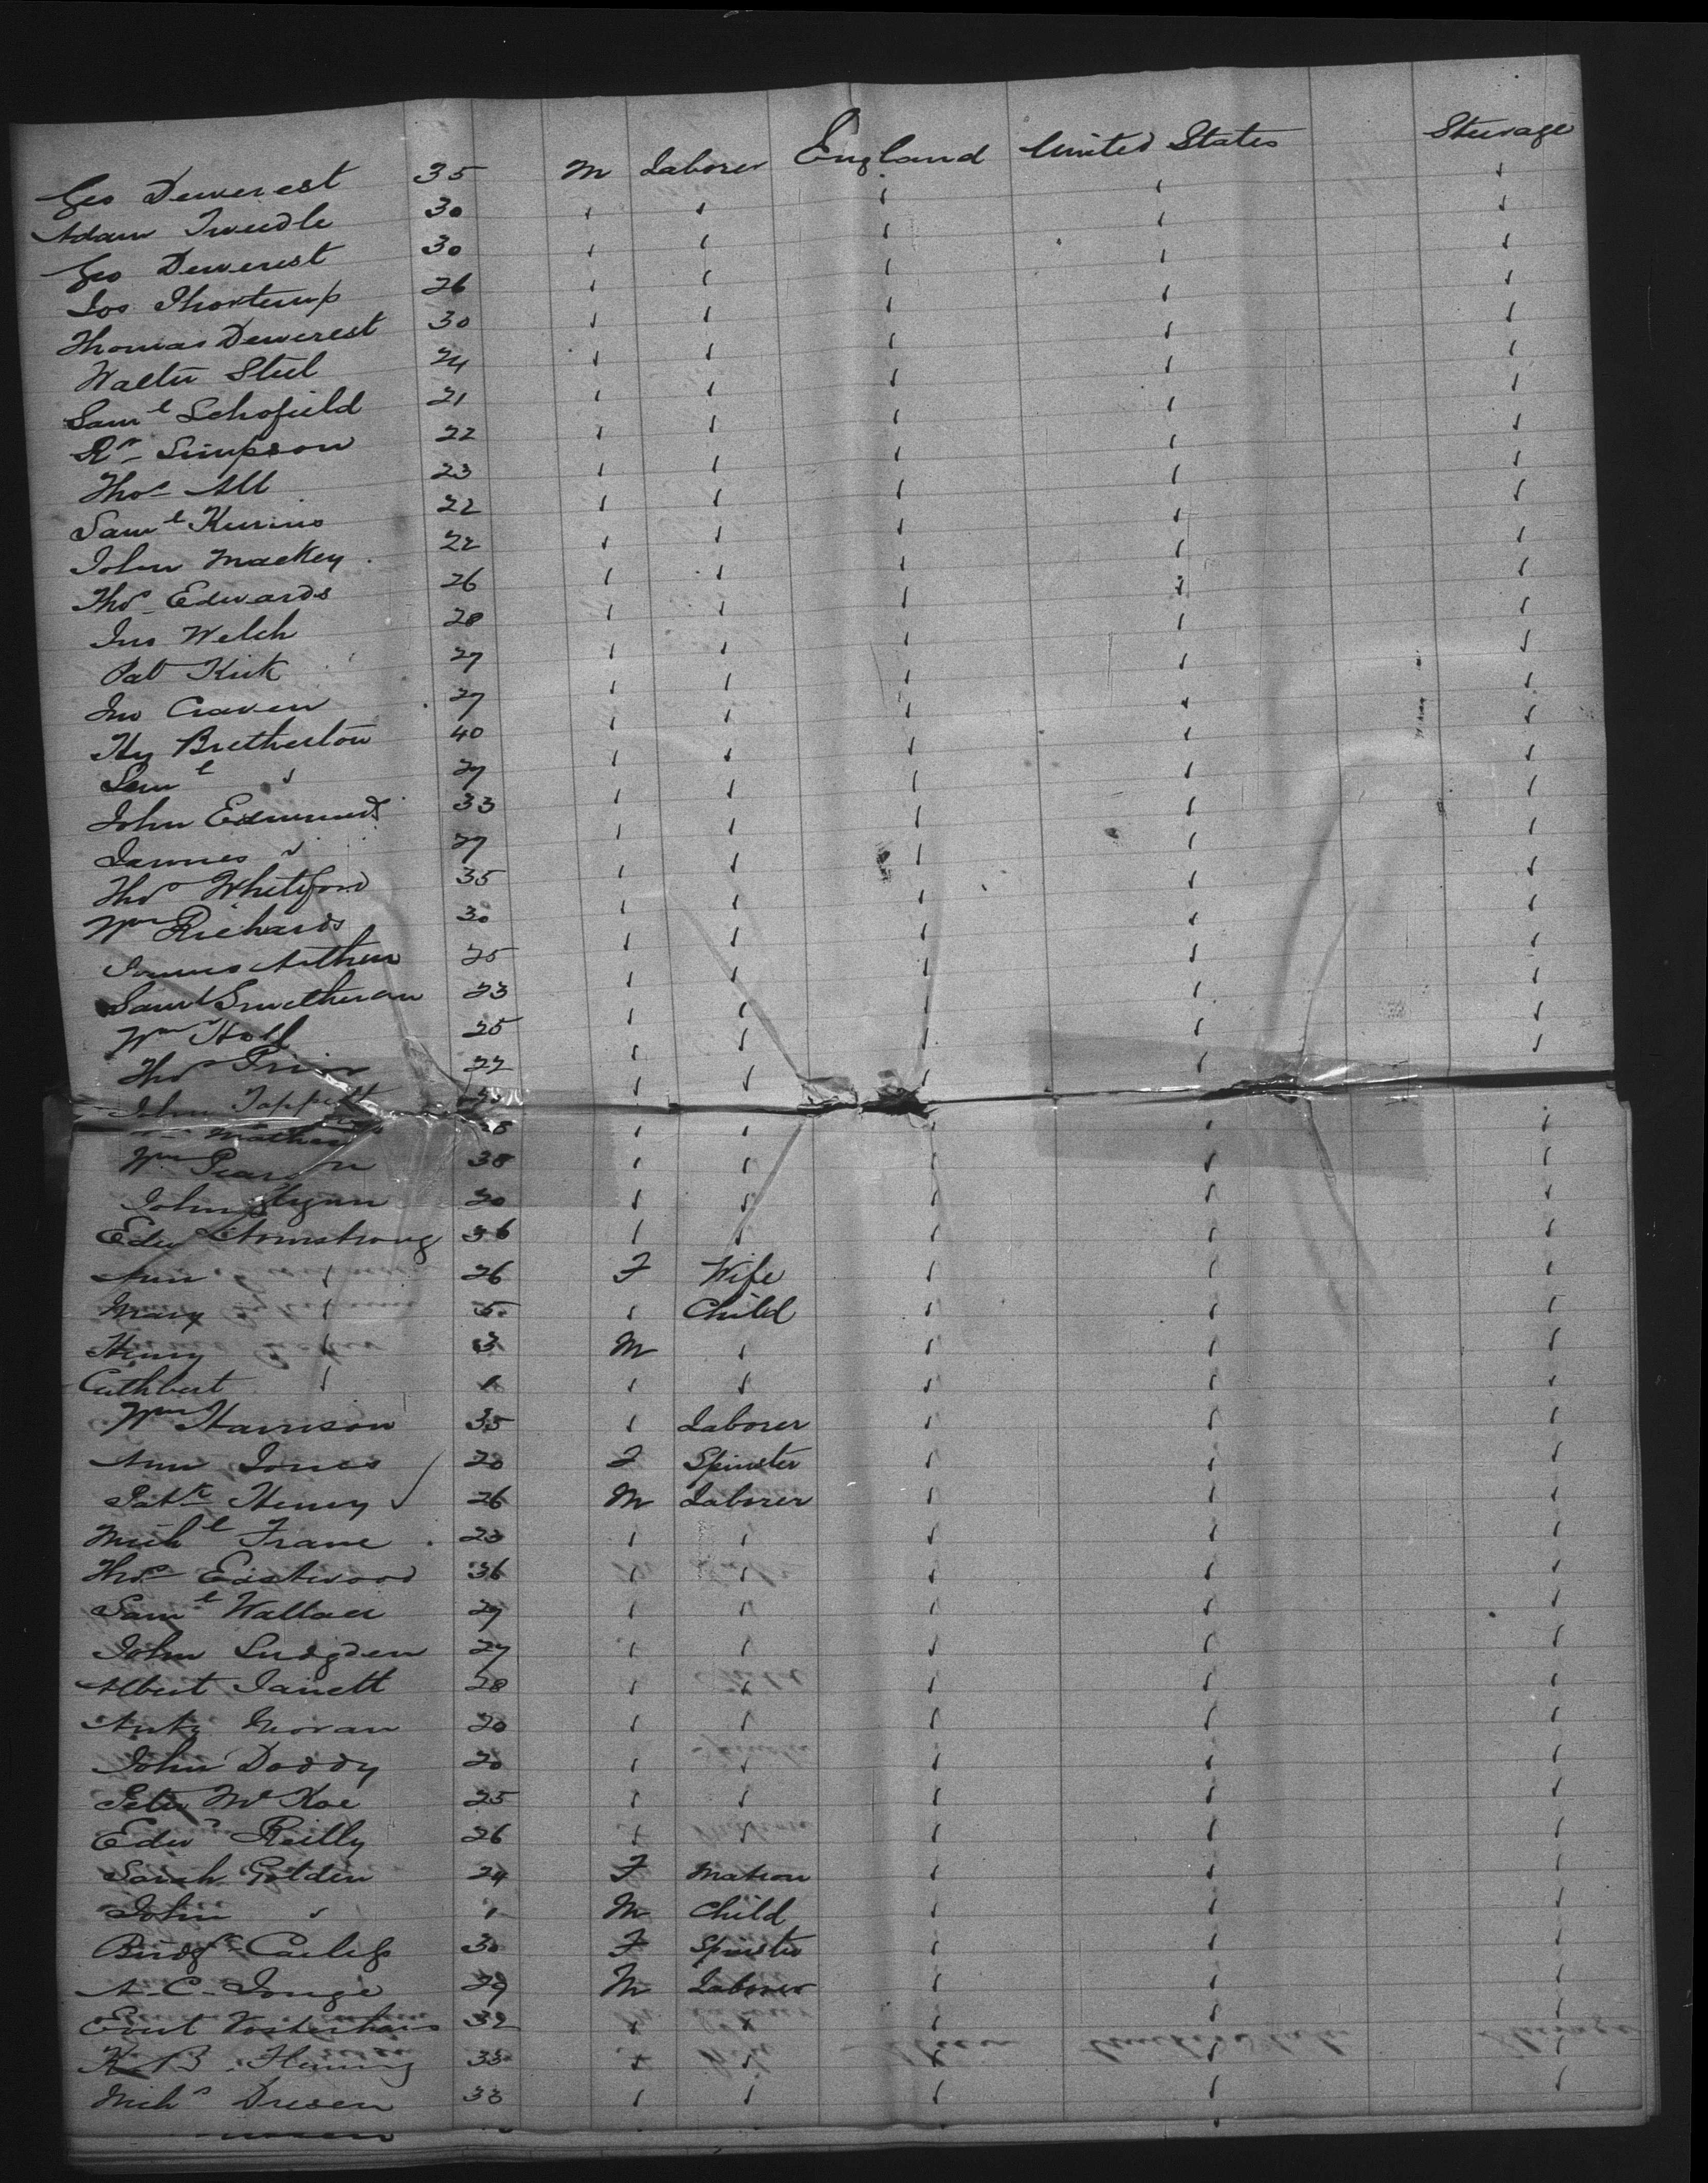 Geo Dewerest 35 M Laborer England United States Steerage
Adam Tweedle 30 " " " " "
Geo Dewerest 30 " " " " "
Jos 26 " " " " "
Thomas Dewerest 30 " " " " "
Walter Steel 24 " " " " "
Saml Schofield 21 " " " " "
Rd Simpson 22 " " " " "
Thos 23 " " " " "
Saml 22 " " " " "
John Mackey 22 " " " " "
Thos Edwards 26 " " " " "
Jno Welch 28 " " " " "
Pat Kirk 27 " " " " "
Jno Craven 27 " " " " "
Hy Bretherton 40 " " " " "
Saml " 27 " " " " "
John Edmunds 33 " " " " "
James " 27 " " " " "
Thos Whiteford 35 " " " " "
Wm Richards 30 " " " " "
James Arthur 25 " " " " "
Saml Smetheram 23 " " " " "
Wm Holl 25 " " " " "
Thos Prior 22 " " " " "
John Tappett " " " " "
Mather " " " " "
Wm Pearson 38 " " " " "
John Flynn 20 " " " " "
Edw Armstrong 36 " " " " "
Ann " 26 F Wife " " "
Mary " 5 " Child " " "
Henry " 3 M " " " "
Cuthbert " 1 " " " " "
Wm Harrison 35 " Laborer " " "
Ann Jones 20 F Spinster " " "
Patk Henry 26 M Laborer " " "
Michl Frane 23 " " " " "
Thos Eastwood 36 " " " " "
Saml Wallace 27 " " " " "
John Sudgden 27 " " " " "
Albert Jarrett 28 " " " " "
Anty Moran 20 " " " " "
John Doddy 20 " " " " "
Peter McKoe 25 " " " " "
Edwd Reilly 26 " " " " "
Sarah Golden 24 F Matron " " "
John " 1 M Child " " "
Bridgt 30 F Spinster " " "
A. C. Jonge 29 M Laborer " " "
Evert 32 " " " " "
K. B. Fleming 33 " " " " "
Michs Dresen 33 " " " " "